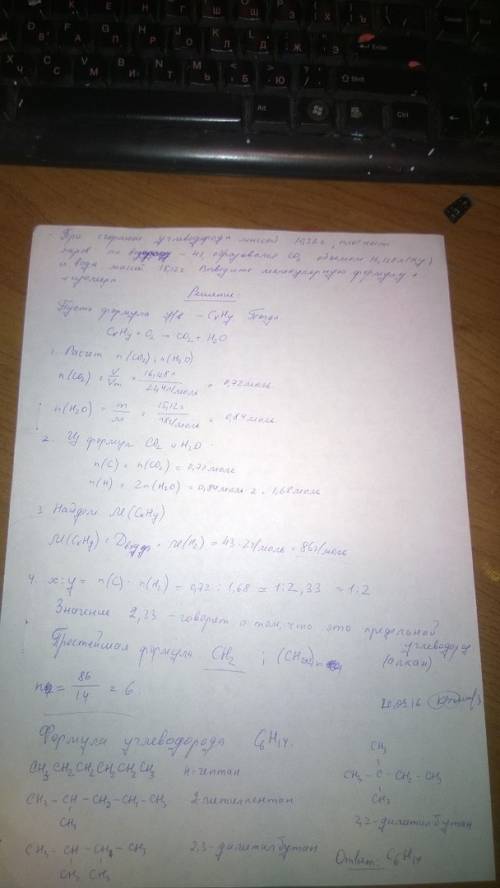 При сгорании углеводорода массой 10,32г, плотность
паров по водороду - 43, образовался CO2 объемом 16,128л (н.у.)
и вода массой 15,12г. Выведите молекулярную формулу и
изомеры
Решение:
Пусть формула у/в - CxHy тогда
CxHy + O2 → CO2 + H2O
1. Расчет n(CO2) и n(H2O)
n(CO2) = V/Vm = 16,128л/22,4л/моль = 0,72моль
n(H2O) = m/M = 15,12г/18г/моль = 0,84моль
2. Из формул CO2 и H2O
n(C) = n(CO2) = 0,72моль
n(H) = 2n(H2O) = 0,84моль · 2 = 1,68моль
3. Найдем M(CxHy)
M(CxHy) = Dводор · M(H2) = 43 · 2г/моль = 86г/моль
4. x:y = n(C) : n(H) = 0,72 : 1,68 = 1:2,33 = 1:2
Значение 2,33 - говорит о том, что это предельный
углеводород
(алкан)
Простейшая формула CH2 ; (CH2)n
n = 86/14 = 6
20.03.16
Формула углеводорода C6H14.
CH3CH2CH2CH2CH2CH3 н-гептан
CH3-CH-CH2-CH2-CH3 2-метилпентан
CH3
CH3-CH-CH-CH3 2,3-диметилбутан
CH3 CH3
CH3
CH3-C-CH2-CH3
CH3
2,2-диметилбутан
Ответ: C6H14
Enter
Shift
Alt
Ctrl